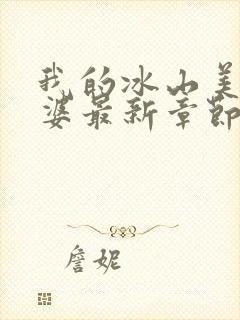 我的冰山美
婆最新章节
詹妮